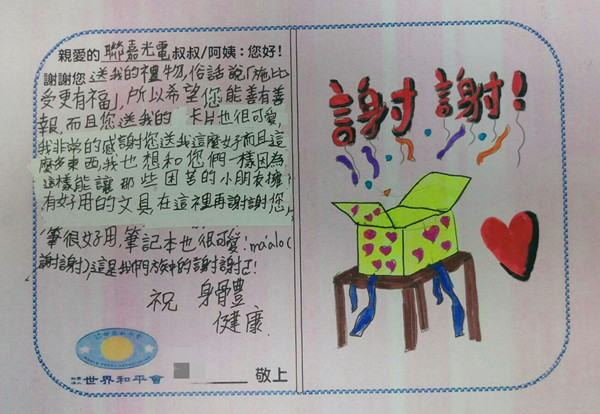 親愛的 聯嘉光電 叔叔/阿姨：您好！
謝謝您送我的禮物，俗話說「施比
受更有福」，所以希望您能善有善
報，而且您送我的 卡片也很可愛，
我非常的感謝您送我這麼好而且這
麼多東西，我也想和您們一樣因為
這樣能讓那些困苦的小朋友擁
有好用的文具，在這裡再謝謝您，
筆很好用，筆記本也很可愛！maalo(
謝謝)，這是我們族的謝謝!
祝 身體
健康
世界和平會
敬上
謝謝！